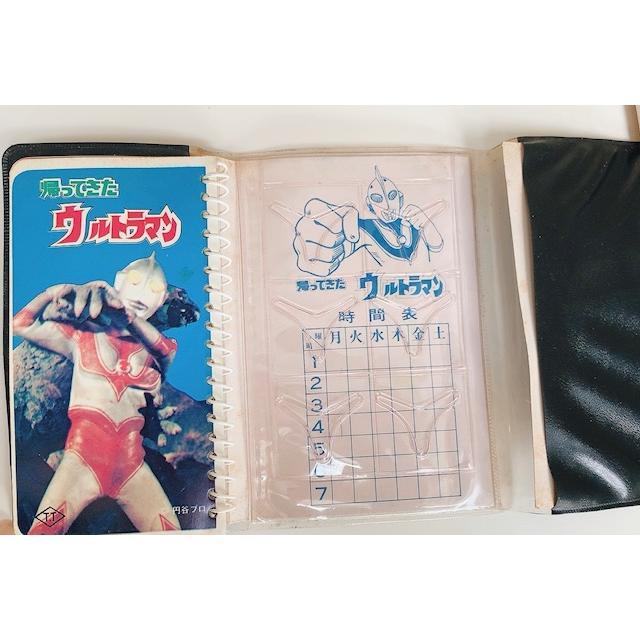 帰ってきた
ウルトラマン
© 円谷プロ
TT
帰ってきた ウルトラマン
時間表
曜 月 火 水 木 金 土
時
1
2
3
4
5
6
7